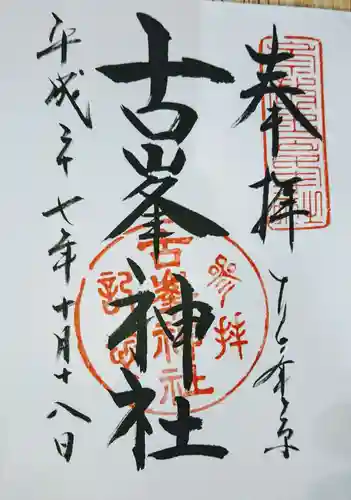 奉拝
古峯神社
平成二十七年十月十八日
古峯神社
参拝
記念